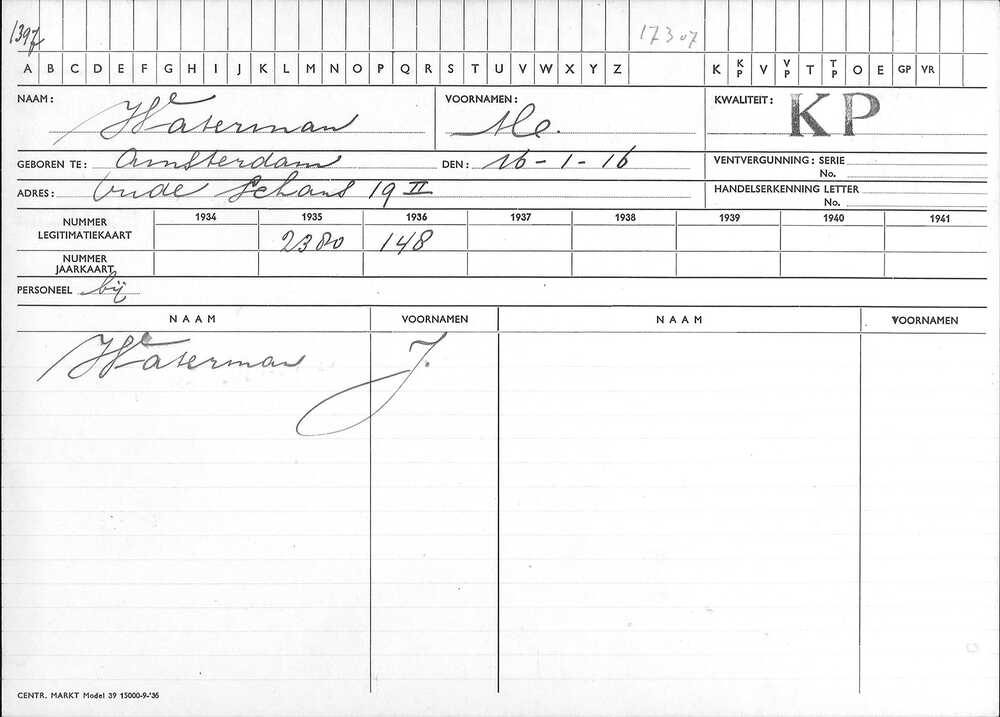 1397
17307
A B C D E F G H I J K L M N O P Q R S T U V W X Y Z K KP V VP T TP O E GP VR
NAAM: Waterman VOORNAMEN: KWALITEIT: KP
GEBOREN TE: Amsterdam DEN: 16-1-16 VENTVERGUNNING: SERIE
No.
ADRES: Oude Schans 19 II HANDELSERKENNING LETTER
No.
NUMMER LEGITIMATIEKAART 1934 1935 1936 1937 1938 1939 1940 1941
2380 148
NUMMER JAARKAART
PERSONEEL bij
NAAM VOORNAMEN NAAM VOORNAMEN
Waterman J.
CENTR. MARKT Model 39 15000-9-'36